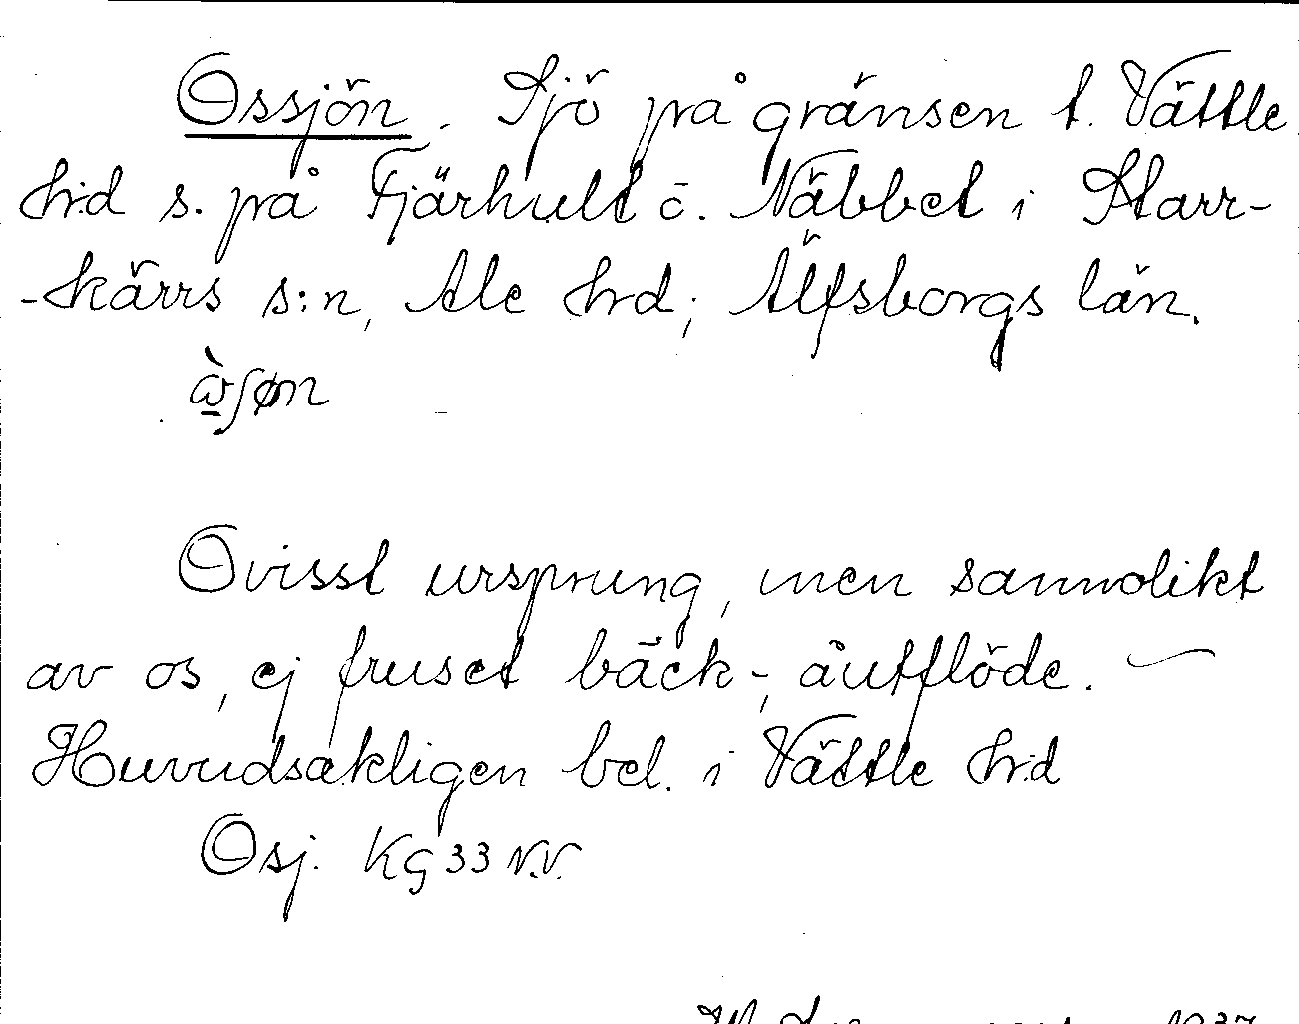 Ossjön. Sjö på gränsen t. Vättle
hrd s. på Fjärhult o. Näbbet i Starr-
-kärrs s:n, Ale hrd; Älfsborgs län.
Ovisst ursprung, men sannolikt
av os, ej fruset bäck-, åutflöde. —
Huvudsakligen bel. i Vättle hrd
Osj. KG 33 N.V.
1937